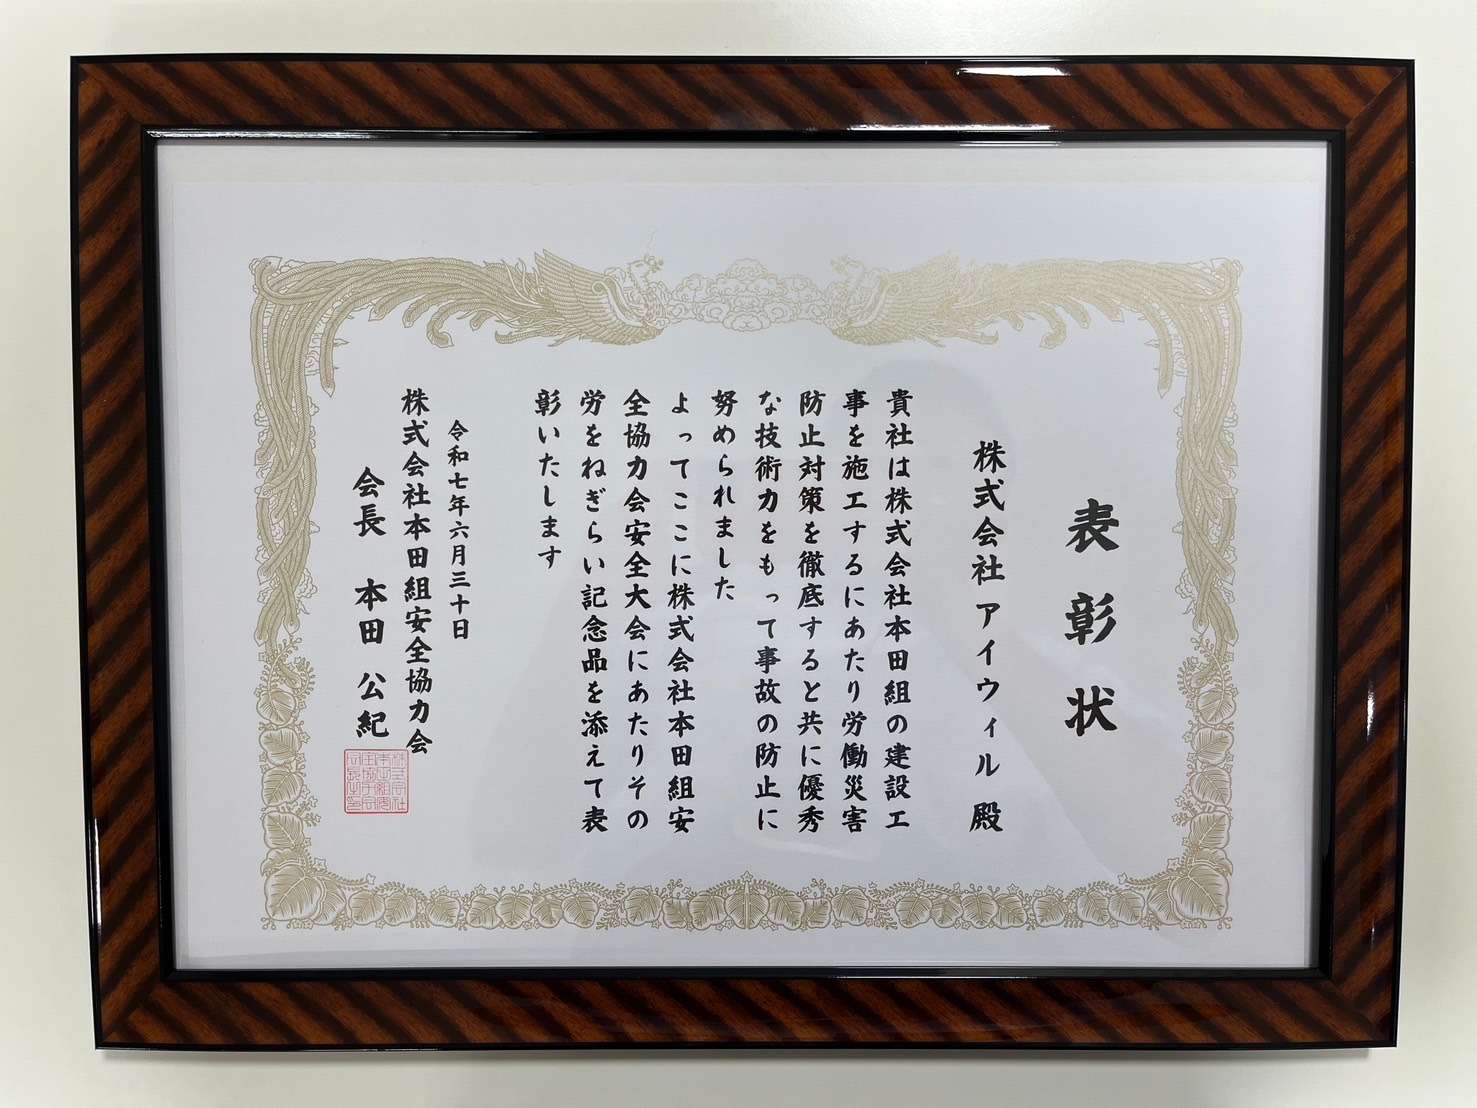 表彰状
株式会社 アイウィル 殿
貴社は株式会社本田組の建設工
事を施工するにあたり労働災害
防止対策を徹底すると共に優秀
な技術力をもって事故の防止に
努められました
よってここに株式会社本田組安
全協力会安全大会にあたりその
労をねぎらい記念品を添えて表
彰いたします
令和七年六月三十日
株式会社本田組安全協力会
会長 本田 公紀